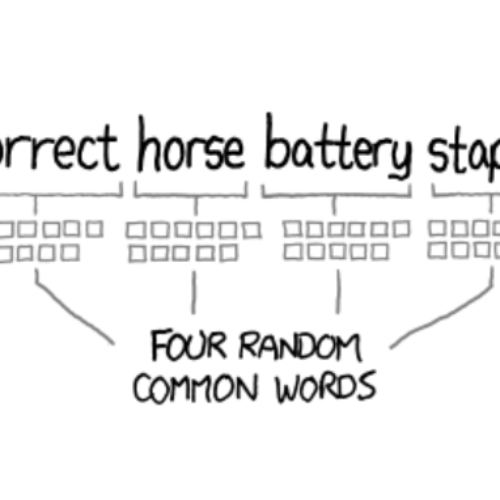 orrect horse battery stap
FOUR RANDOM
COMMON WORDS